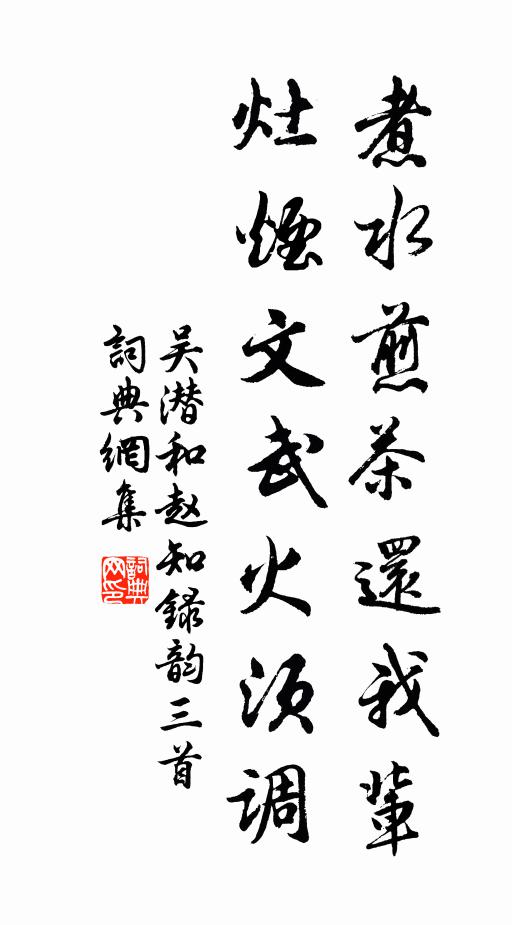 煮水煎茶還我輩
灶煙文武火须調
吴潜和赵知録韵三首
詞典網集
詞典网印